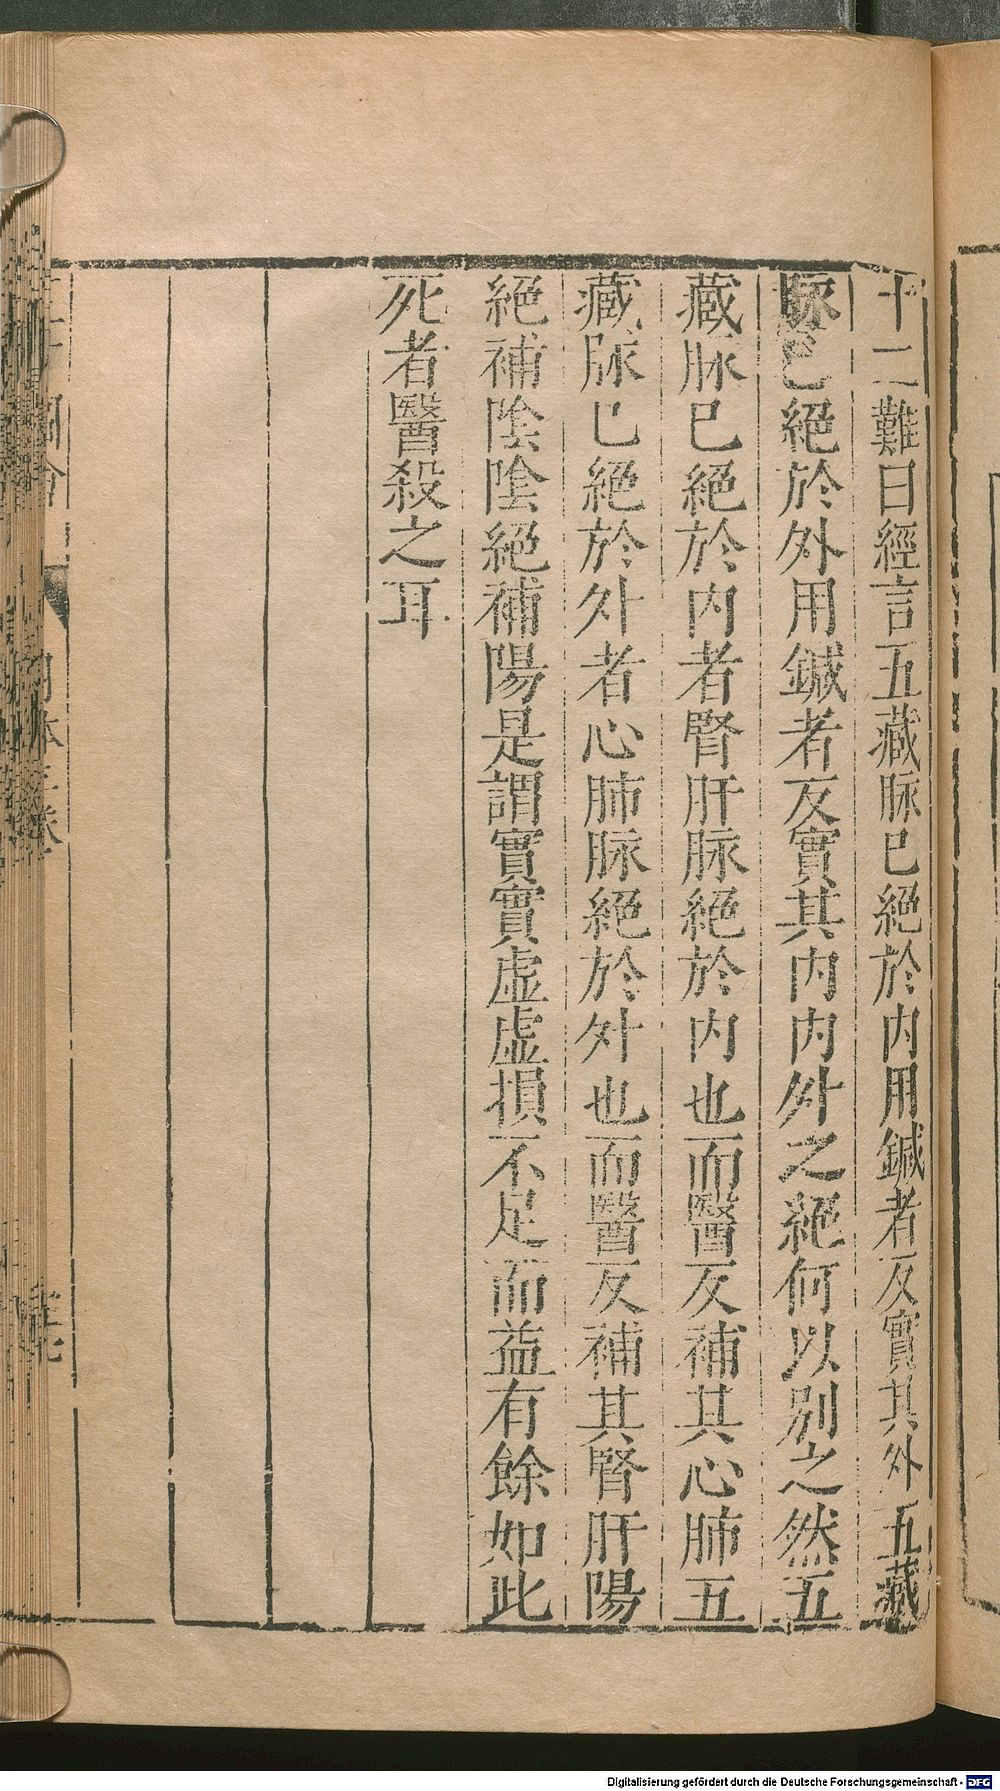 十二難曰經言五藏脉已絕於內用鍼者反實其外五藏
脉已絕於外用鍼者反實其內內外之絕何以別之然五
藏脉已絕於內者腎肝脉絕於內也而醫反補其心肺五
藏脉已絕於外者心肺脉絕於外也而醫反補其腎肝陽
絕補陰陰絕補陽是謂實實虛虛損不足而益有餘如此
死者醫殺之耳
Digitalisierung gefördert durch die Deutsche Forschungsgemeinschaft - DFG